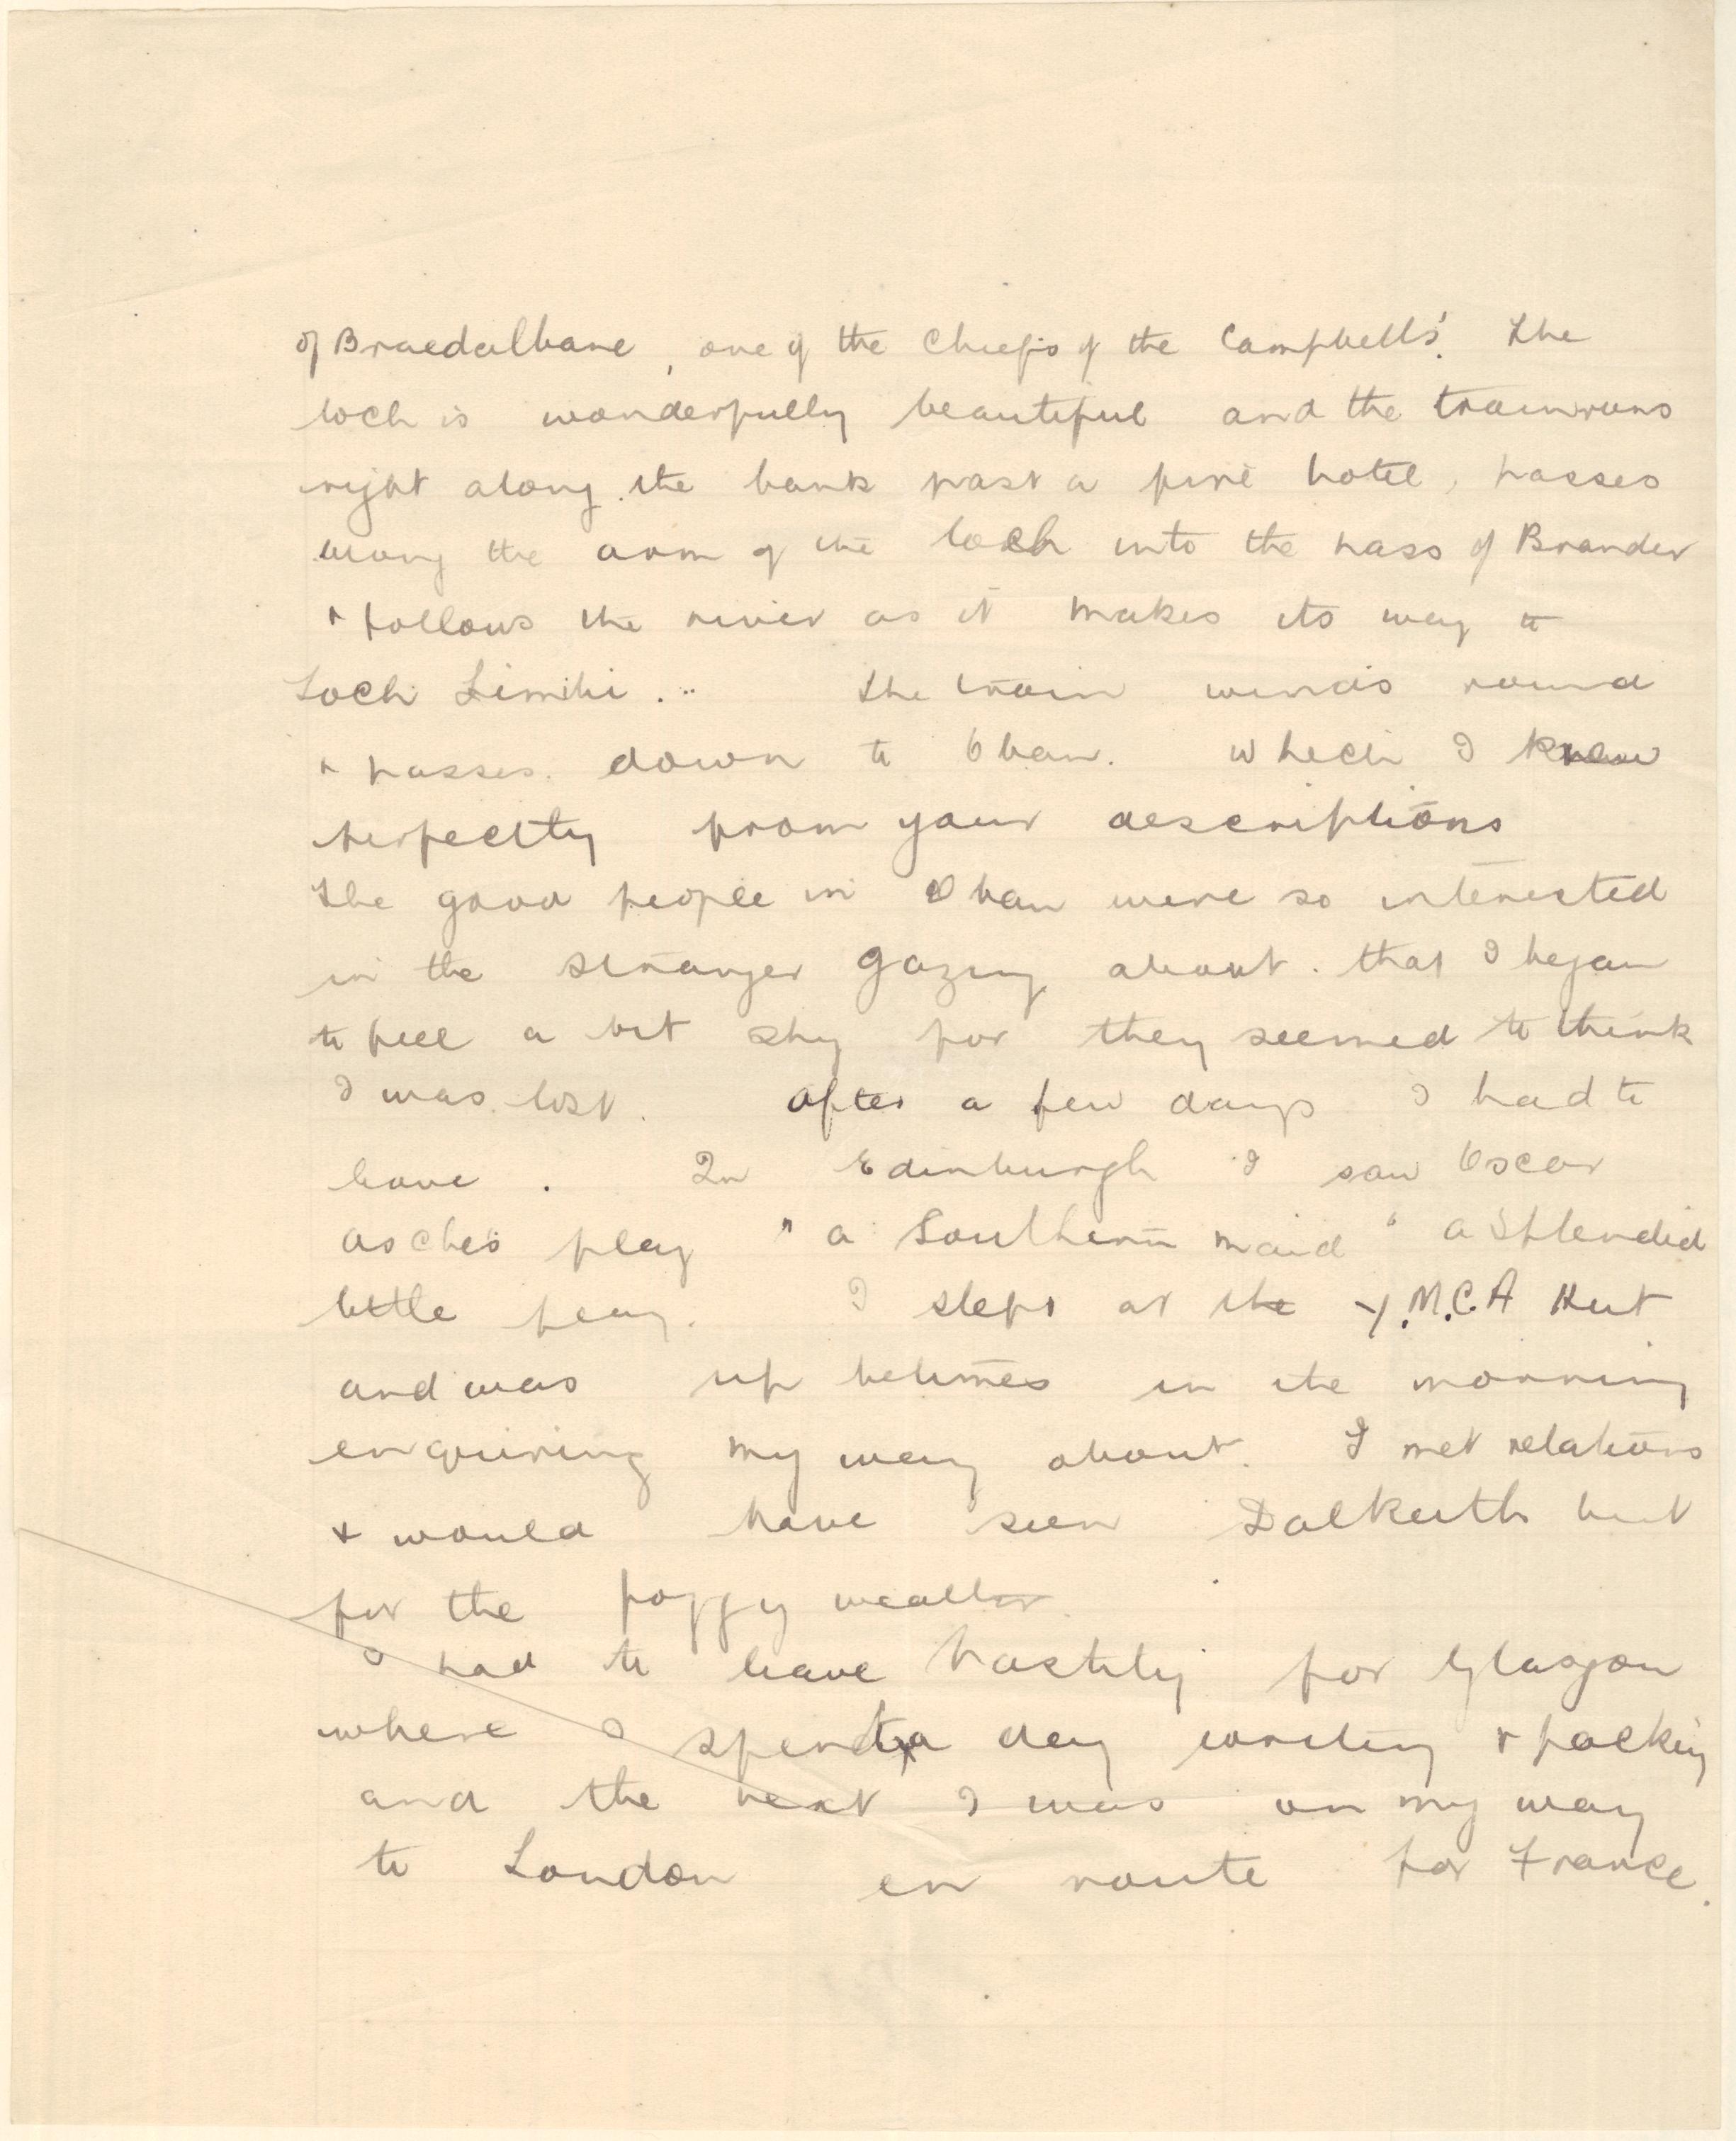 of Braedalbane, one of the Chiefs of the Campbells'. The
loch is wonderfully beautiful and the train runs
right along the bank past a fine hotel, passes
along the arm of the loch into the pass of Brander
& follows the river as it makes its way to
Loch Linnhi... The train winds round
& passes down to Oban. Which I knew
perfectly from your descriptions
The good people in Oban were so interested
in the stranger gazing about. that I began
to feel a bit shy for they seemed to think
I was lost. After a few days I had to
leave. In Edinburgh I saw Oscar
asches play "a Southern maid" a splendid
little play. I slept at the Y.M.C.A Hut
and was up betimes in the morning
enquiring my way about. I met relations
& would have seen Dalkeith but
for the foggy weather.
I had to leave hastily for Glasgow
where I spent a day writing & packing
and the next I was on my way
to London en route for France.